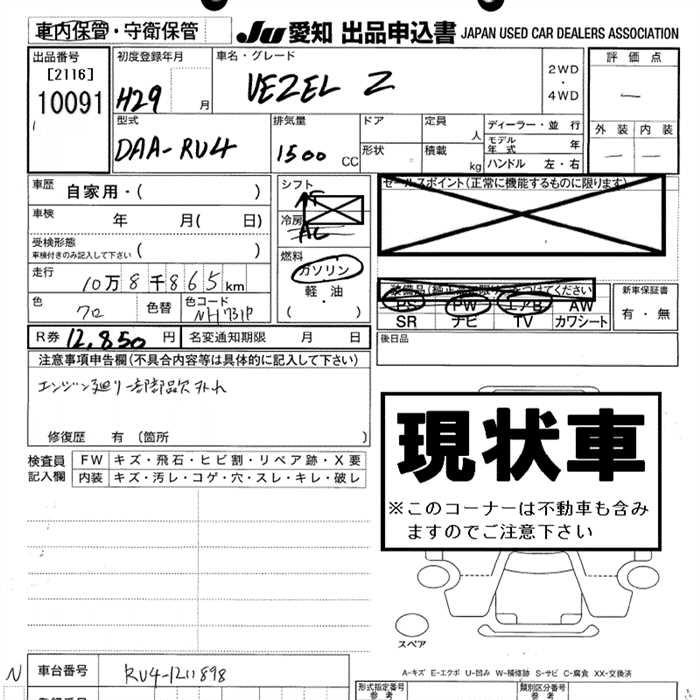 車内保管・守衛保管
Ju 愛知 出品申込書 JAPAN USED CAR DEALERS ASSOCIATION
出品番号
[2116]
10091
初度登録年月
H29 月
車名・グレード
VEZEL Z
2WD
・
4WD
評価点
外装 内装
型式
DAA-RU4
排気量
1500 CC
ドア
形状
定員 人
積載 kg
ディーラー・並行
モデル年式 年
ハンドル 左・右
車歴 自家用・( )
車検 年 月( 日)
受検形態
車検付きのみ記入して下さい ( )
走行 10万8千865km
色 クロ 色替 色コード NH731P
シフト
冷房
AC
燃料
ガソリン
軽・油
( )
セールスポイント(正常に機能するものに限ります)
PS PW エアB AW
SR ナビ TV カワシート
新車保証書
有・無
R券 12,850円 名変通知期限 月 日
後日品
注意事項申告欄(不具合内容等は具体的に記入して下さい)
エンジン廻り一部部品欠 外れ
修復歴 有 〔箇所 〕
検査員記入欄
FW キズ・飛石・ヒビ割・リペア跡・X要
内装 キズ・汚レ・コゲ・穴・スレ・キレ・破レ
現状車
※このコーナーは不動車も含み
ますのでご注意下さい
スペア
N 車台番号 RU4-1211898
A-キズ E-エクボ U-凹み W-補修跡 S-サビ C-腐食 XX-交換済
形式指定番号
参考
類別区分番号
参考